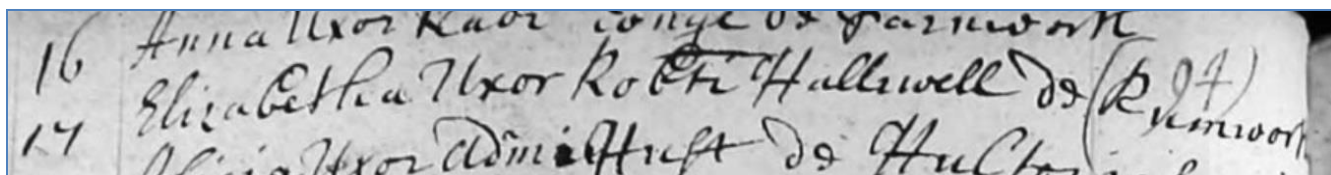 16 Anna Uxor Radi Longe de Farnworth
Elizabetha Uxor Robti Halliwell de (Rumworth
17 Uxor Adami Hulst de Hulton